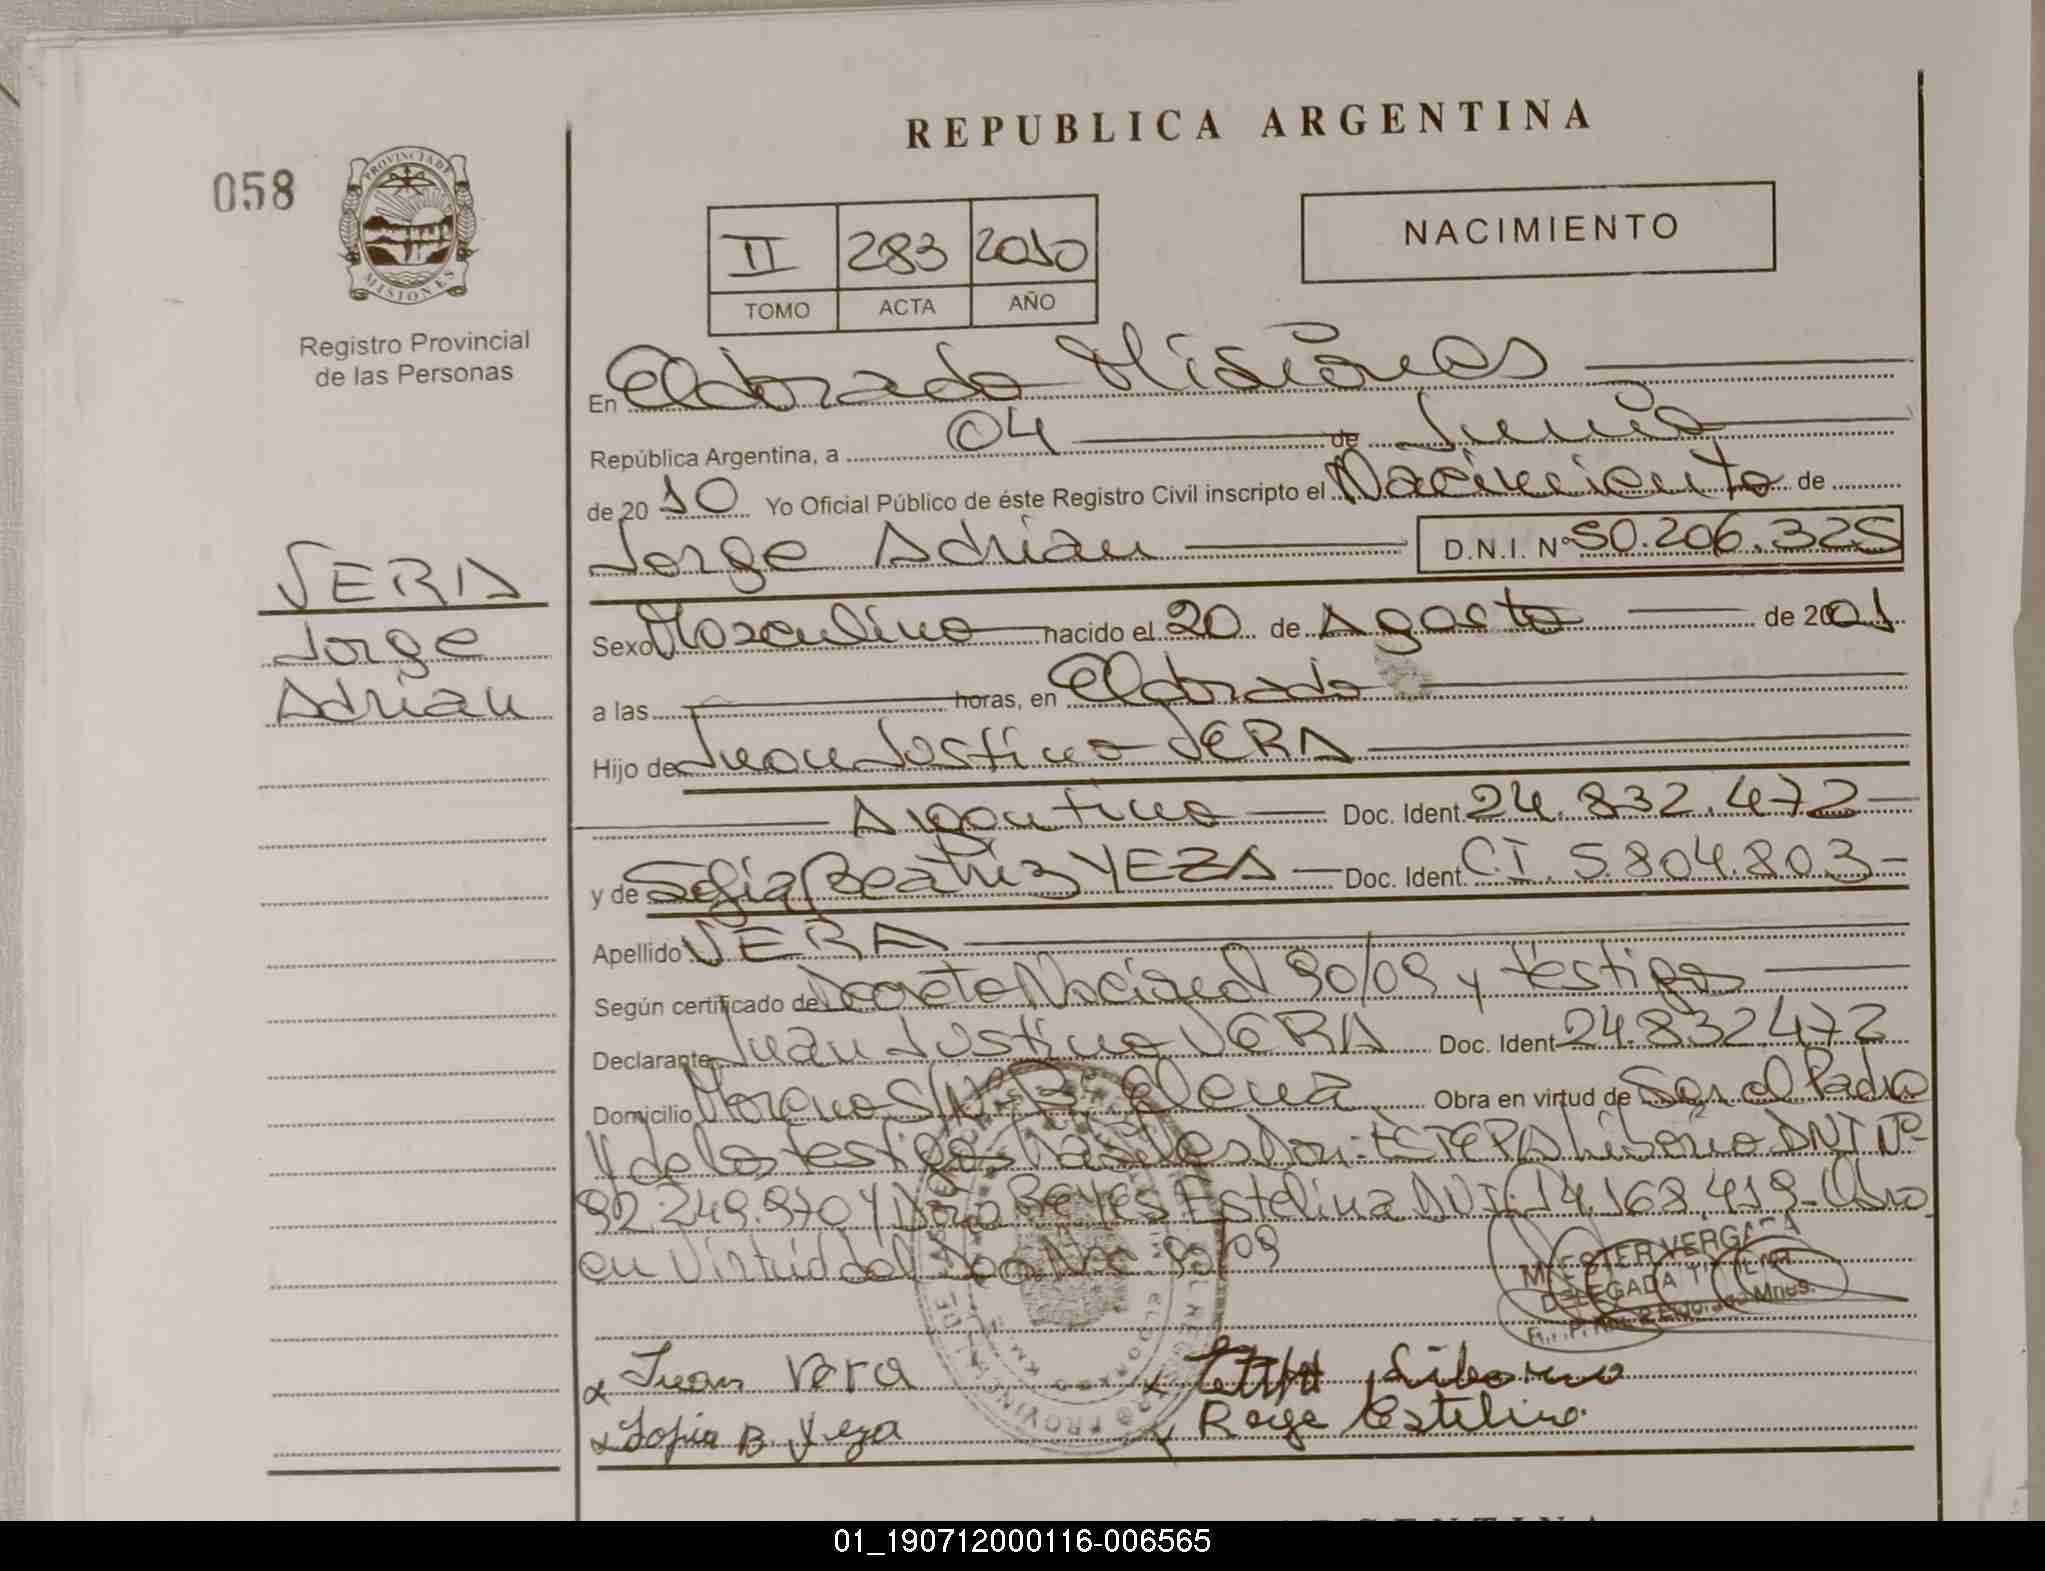 REPUBLICA ARGENTINA
058
PROVINCIA DE
MISIONES
Registro Provincial
de las Personas
NACIMIENTO
II 283 2010
TOMO ACTA AÑO
En Eldorado Misiones
República Argentina, a 04 de Junio
de 2010 Yo Oficial Público de éste Registro Civil inscripto el Nacimiento de
Jorge Adrian D.N.I. Nº 50.206.325
VERA
Jorge
Adrian
Sexo Masculino nacido el 20 de Agosto de 2001
a las horas, en Eldorado
Hijo de Juan Justino VERA
Argentino Doc. Ident. 24.832.472
y de Sofia Beatriz YEZA Doc. Ident. C.I. 5.804.803
Apellido VERA
Según certificado de Decreto Nacional 90/09 y testigos
Declarante Juan Justino VERA Doc. Ident 24.832.472
Domicilio Moreno S/Nº Bº Elena Obra en virtud de Ser el Padre
y de los testigos habiles Don: Liborio DNI Nº
92.249.970 y Doña Reyes Estelina DNI: 14.168.419-Obro
en Virtud del Decreto 90/09
M. ESTER VERGARA
DELEGADA TITULAR
Juan Vera Liborio
Sofia B. Yeza Reye Estelina
01_190712000116-006565